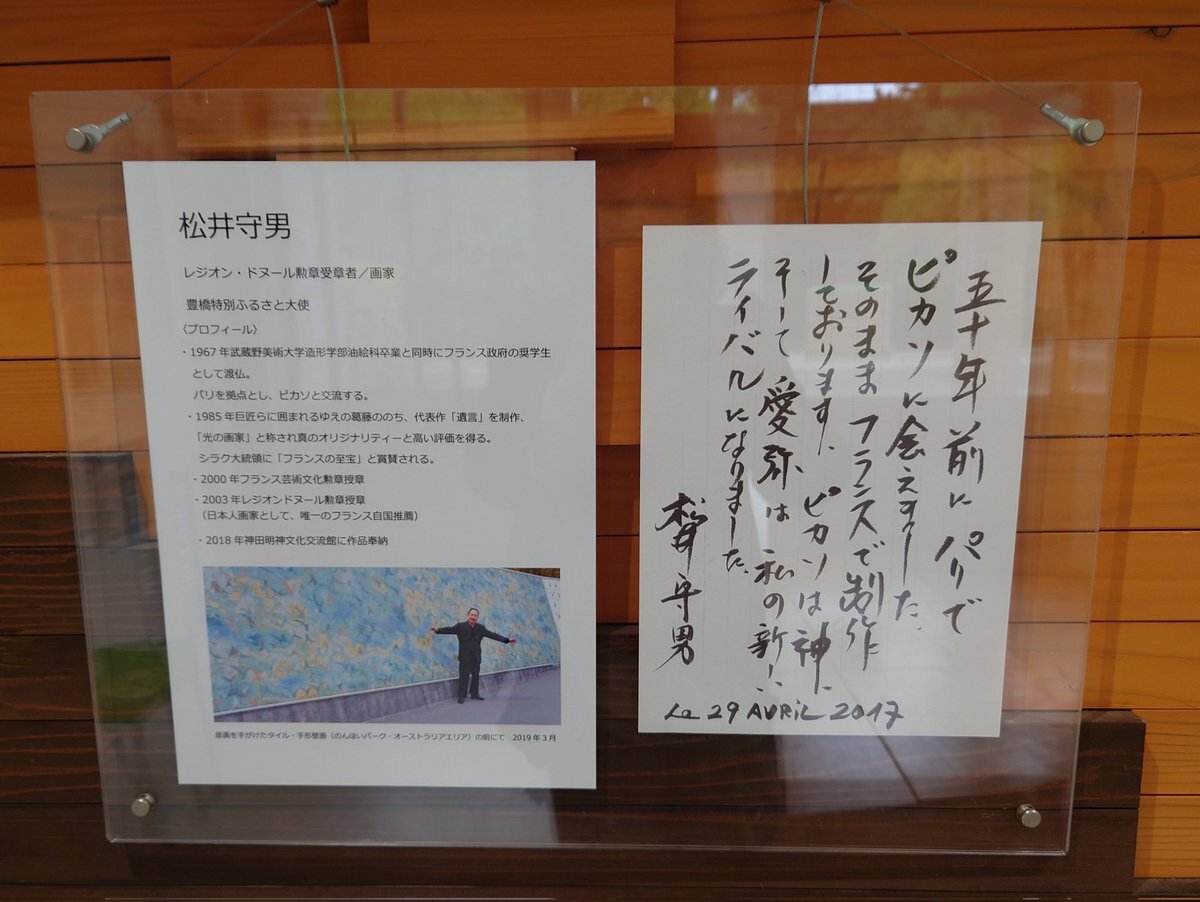 松井守男
レジオン・ドヌール勲章受章者／画家
豊橋特別ふるさと大使
〈プロフィール〉
・1967年武蔵野美術大学造形学部油絵科卒業と同時にフランス政府の奨学生
として渡仏。
パリを拠点とし、ピカソと交流する。
・1985年巨匠らに囲まれるゆえの葛藤ののち、代表作「遺言」を制作、
「光の画家」と称され真のオリジナリティーと高い評価を得る。
シラク大統領に「フランスの至宝」と賞賛される。
・2000年フランス芸術文化勲章授章
・2003年レジオンドヌール勲章授章
（日本人画家として、唯一のフランス自国推薦）
・2018年神田明神文化交流館に作品奉納
原画を手がけたタイル・手形壁画（のんほいパーク・オーストラリアエリア）の前にて　2019年3月
五十年前にパリで
ピカソに会えました。
そのままフランスで制作
しております。ピカソは神に
そして愛弥は私の新しい
ライバルになりました。
松井守男
Le 29 AVRIL 2017